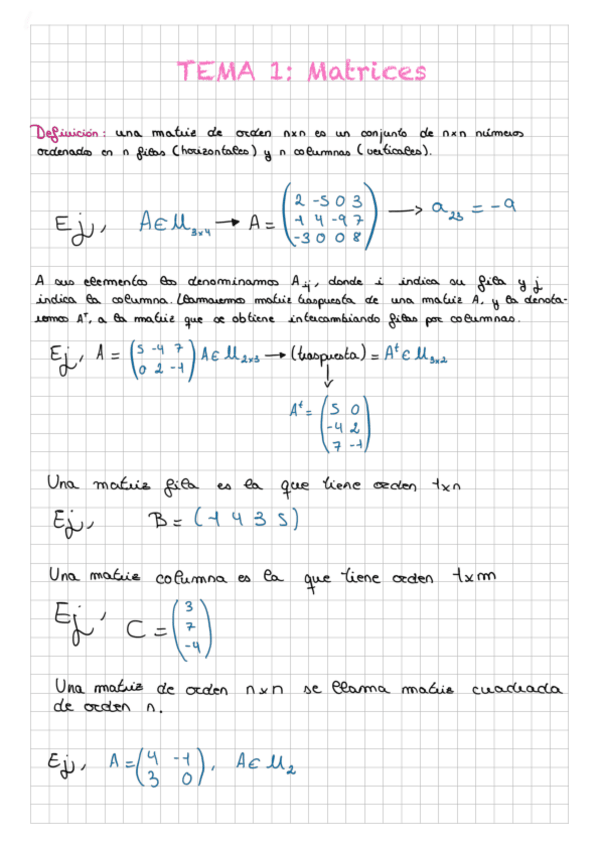 TEMA 1: Matrices
Definición: una matriz de orden nxn es un conjunto de nxn números
ordenados en n filas (horizontales) y n columnas (verticales).
Ej, A∈M₃ₓ₄ → A = (2 -5 0 3
-1 4 -9 7
-3 0 0 8) → a₂₃ = -9
A sus elementos los denominamos Aᵢⱼ, donde i indica su fila y j
indica la columna. Llamaremos matriz traspuesta de una matriz A, y la denota-
remos Aᵗ, a la matriz que se obtiene intercambiando filas por columnas.
Ej, A = (5 -4 7
0 2 -1) A∈M₂ₓ₃ → (traspuesta) = Aᵗ∈M₃ₓ₂
Aᵗ = (5 0
-4 2
7 -1)
Una matriz fila es la que tiene orden 1xn
Ej, B = (-1 4 3 5)
Una matriz columna es la que tiene orden 1xm
Ej, C = (3
7
-4)
Una matriz de orden nxn se llama matriz cuadrada
de orden n.
Ej, A = (4 -1
3 0), A∈M₂